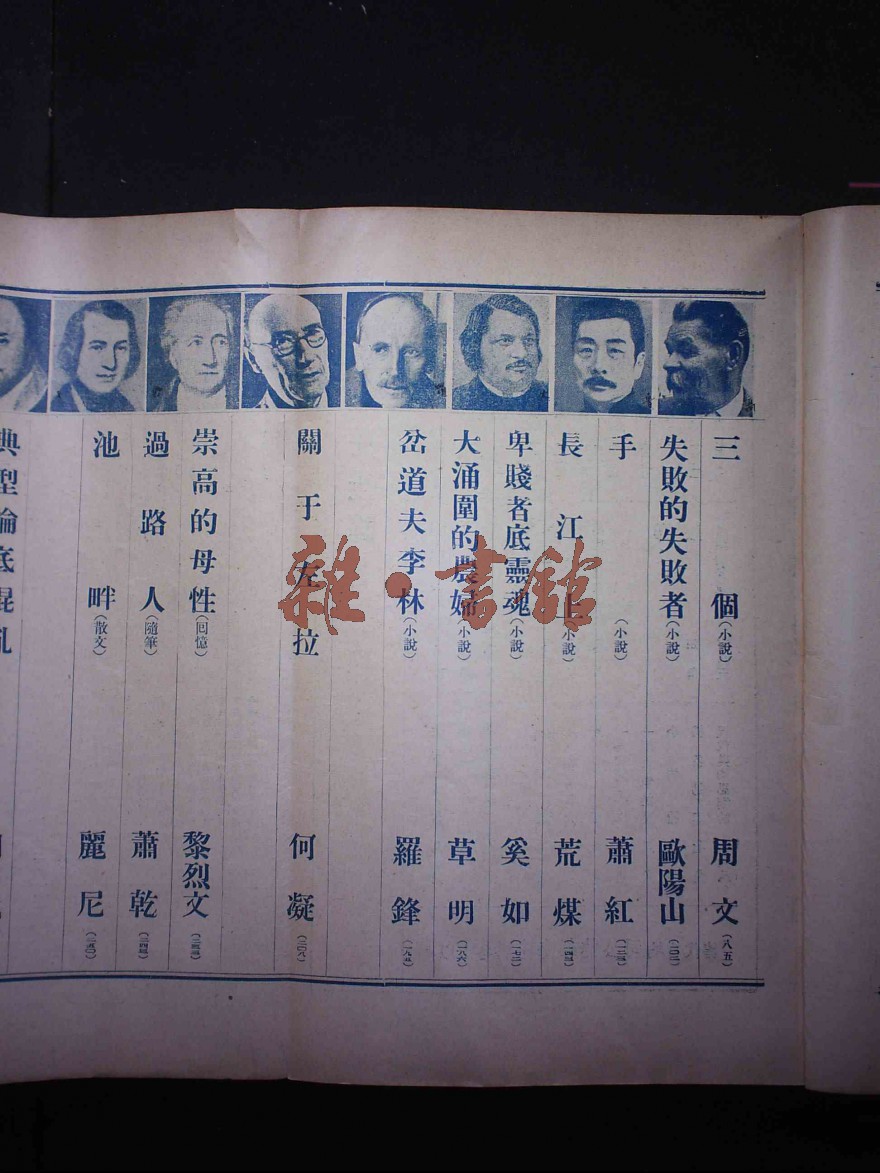 三個（小說） 周文（八五）
失敗的失敗者（小說） 歐陽山（一〇二）
手（小說） 蕭紅（一二三）
長江上（小說） 荒煤（一四三）
卑賤者底靈魂（小說） 奚如（一七二）
大涌圍的農婦（小說） 草明（一八六）
岔道夫李林（小說） 羅鋒（一九五）
關于左拉 何凝（二〇八）
崇高的母性（回憶） 黎烈文
過路人（隨筆） 蕭乾
池畔（散文） 麗尼（二五〇）
典型論底混乱
雜·書館